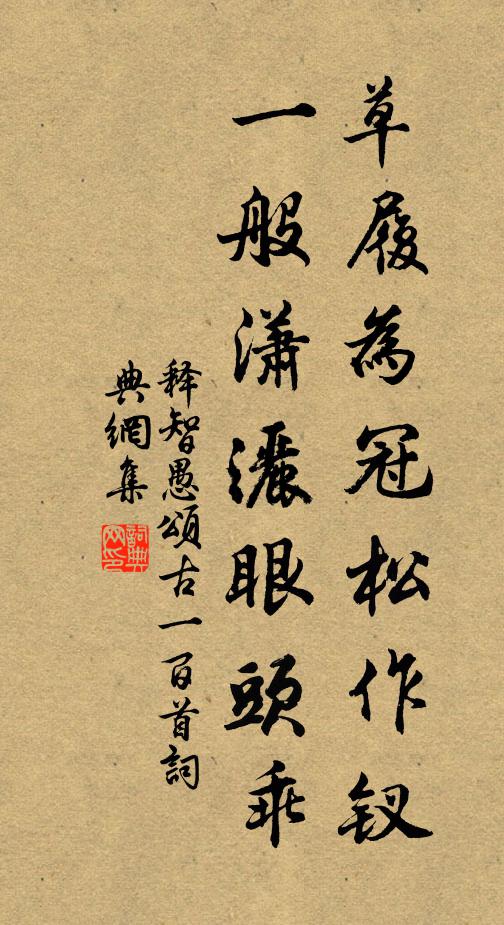 草履為冠松作钗
一般瀟灑眼頭乖
释智愚頌古一百首詞
典網集
詞典网印